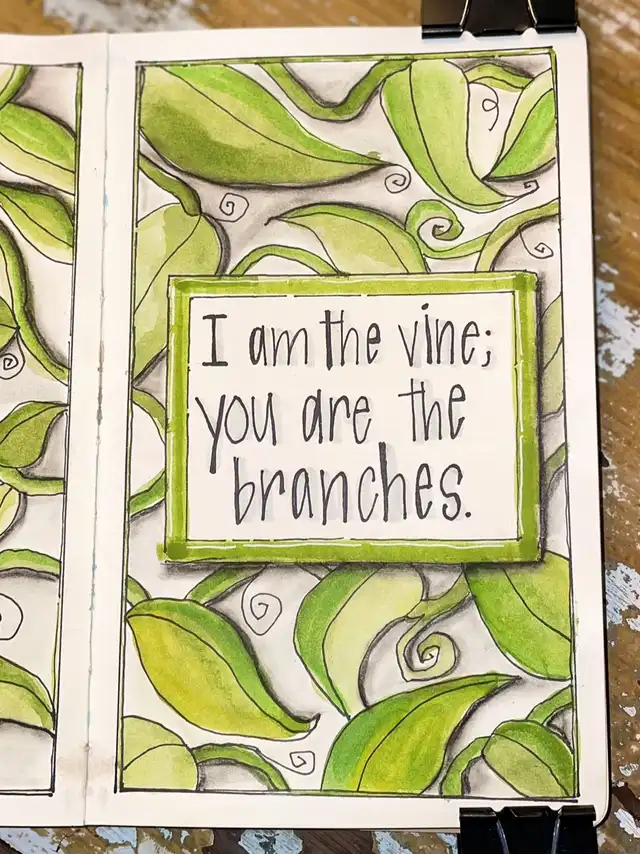 I am the vine;
you are the
branches.